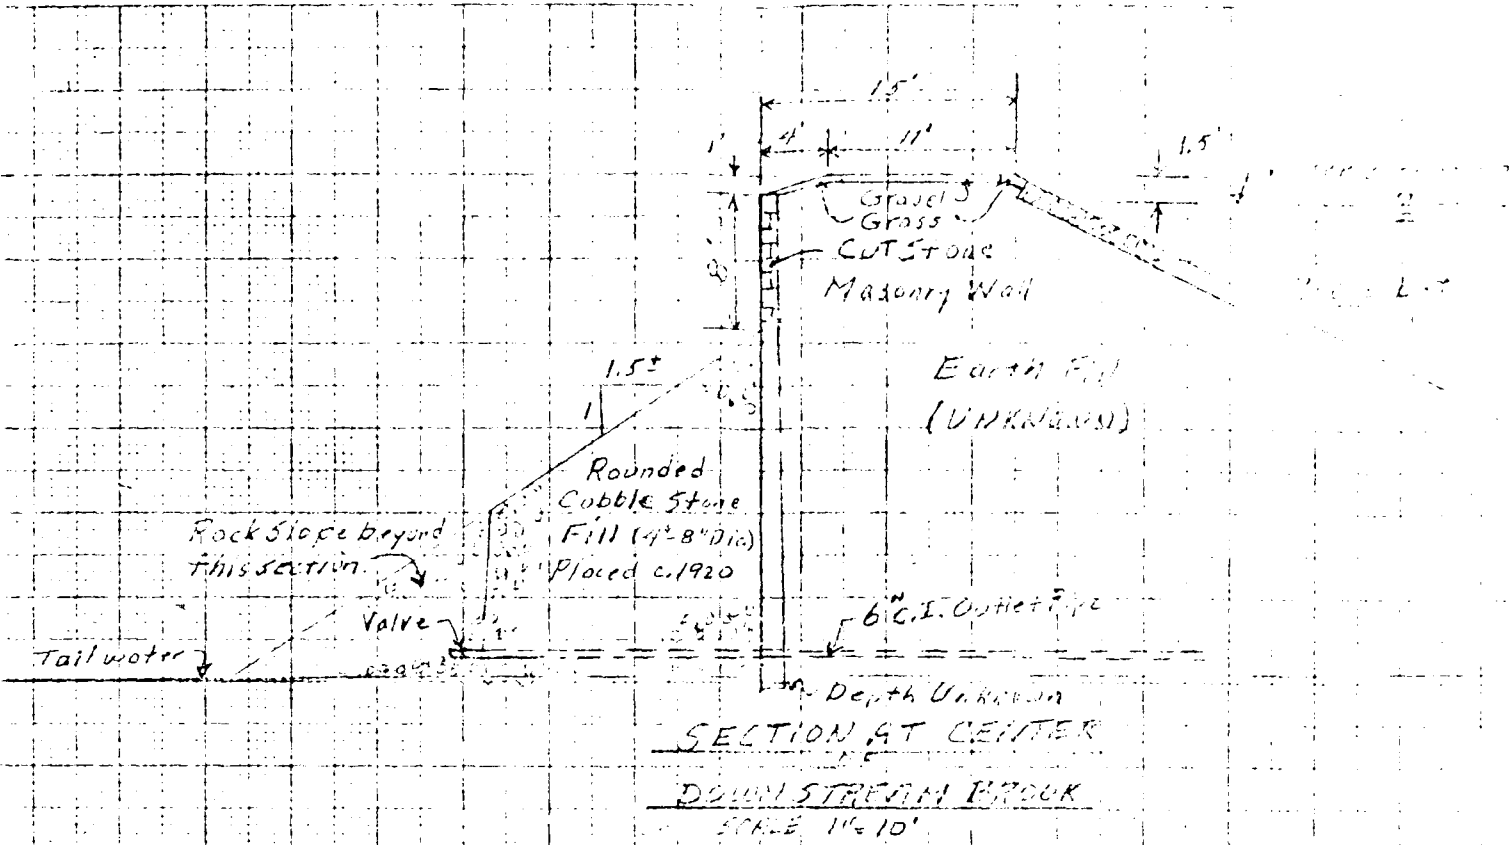 15'
1'
4'
11'
1.5'
Gravel
Grass
8'
Cut Stone
Masonry Wall
Earth Fill
(UNKNOWN)
1.5±
1
Rounded
Cobble Stone
Fill (4"-8" Dia)
Placed c.1920
Rock Slope beyond
this section
Valve
6" C.I. Outlet Pipe
Tailwater
Depth Unknown
SECTION AT CENTER
OF
DOWNSTREAM BROOK
SCALE 1"=10'